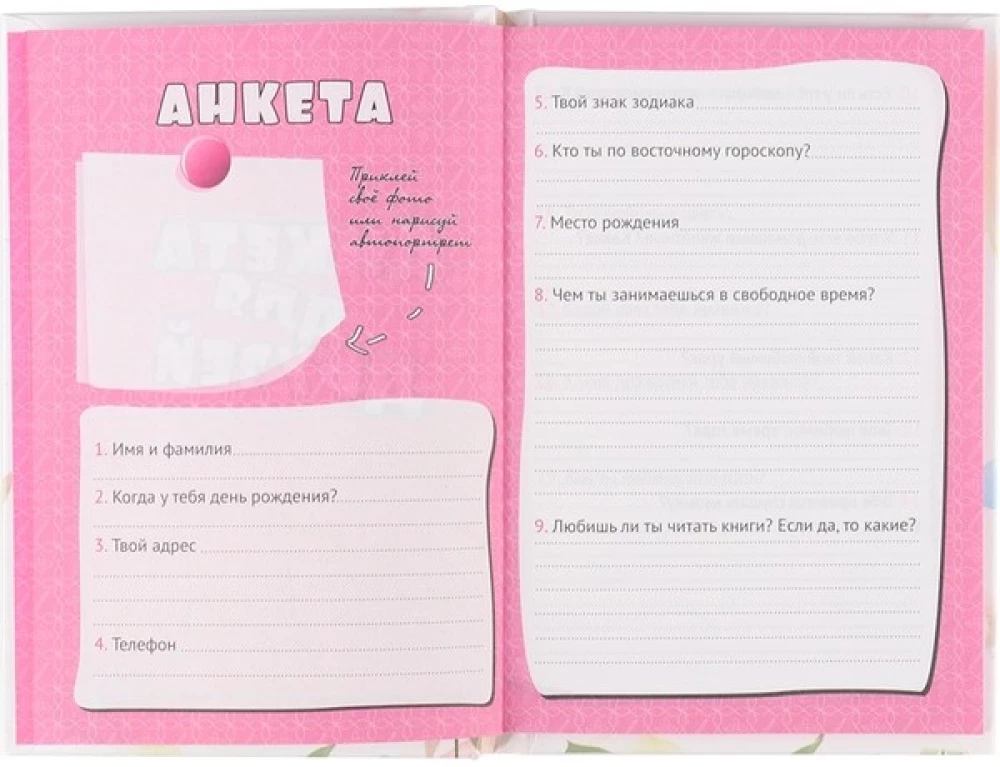 АНКЕТА
Приклей
своё фото
или нарисуй
автопортрет
1. Имя и фамилия
2. Когда у тебя день рождения?
3. Твой адрес
4. Телефон
5. Твой знак зодиака
6. Кто ты по восточному гороскопу?
7. Место рождения
8. Чем ты занимаешься в свободное время?
9. Любишь ли ты читать книги? Если да, то какие?